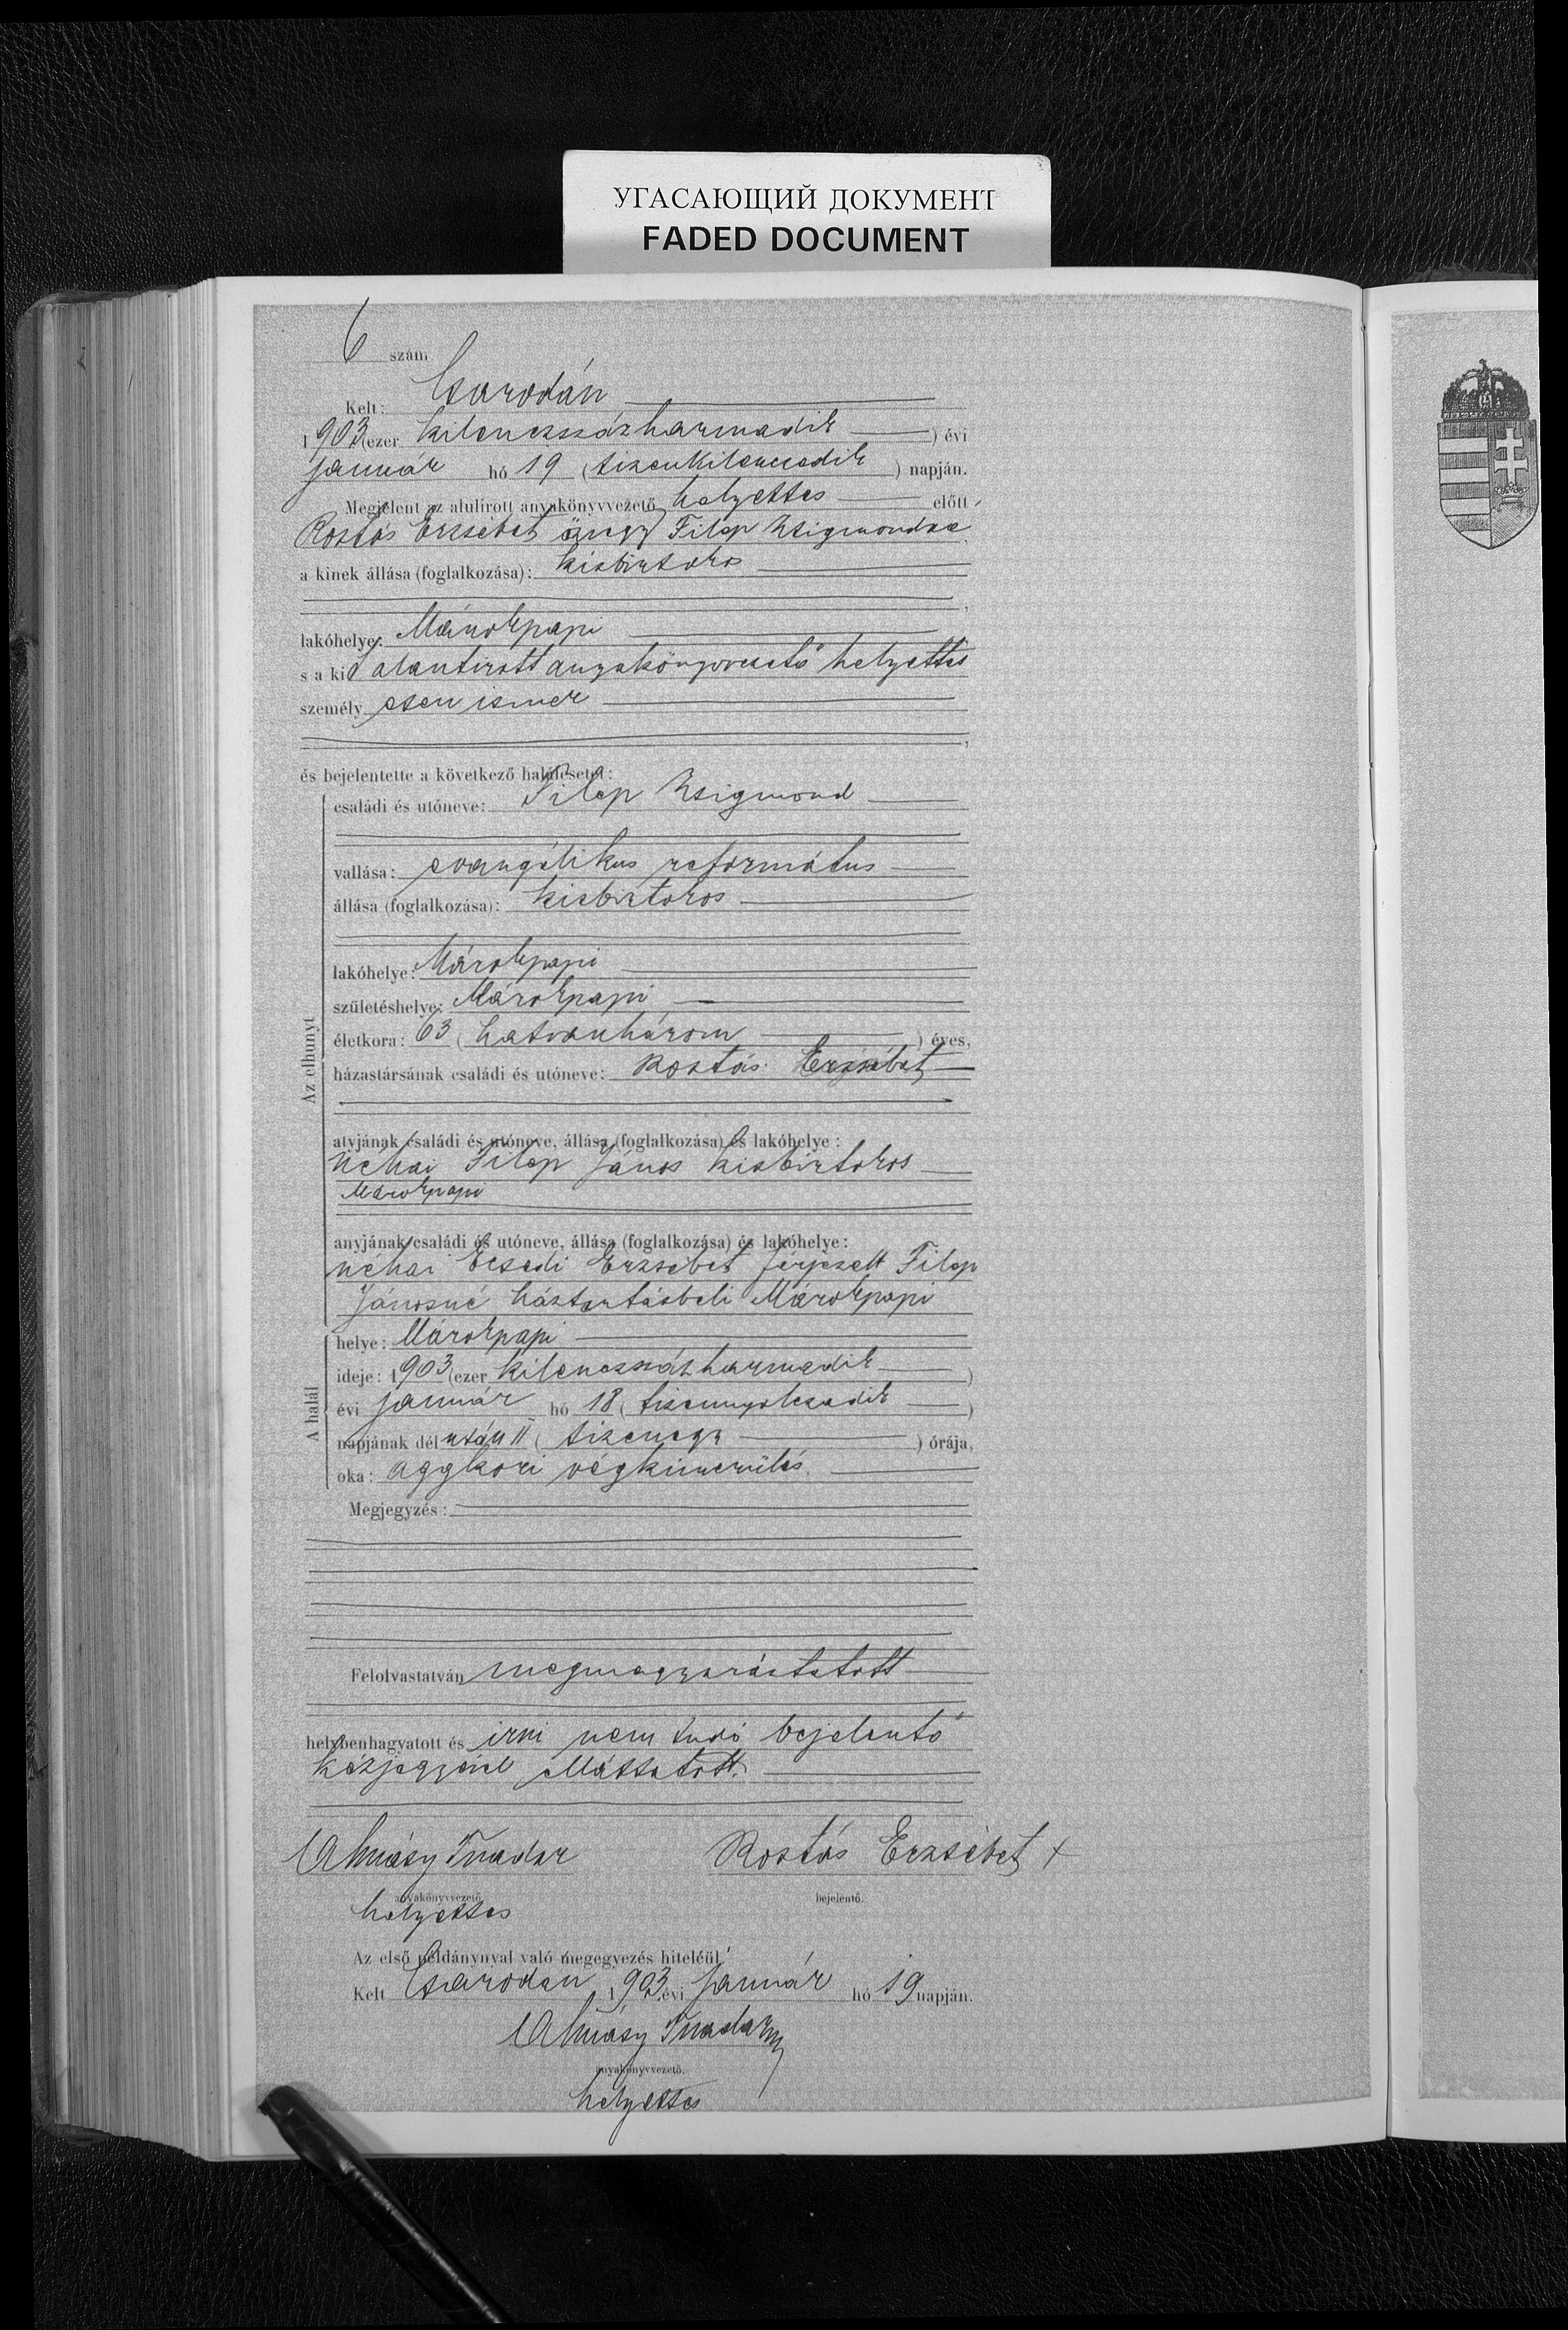 УГАСАЮЩИЙ ДОКУМЕНТ
FADED DOCUMENT
6 szám
Kelt: Csarodán
1903 (ezer kilenczszázharmadik ) évi
január hó 19 (tizenkilenczedik ) napján.
Megjelent az alulirott anyakönyvvezető helyettes előtt
Rostás Erzsébet özvegy Filep Zsigmondné
a kinek állása (foglalkozása): kisbirtokos
lakóhelye: Márokpapi
s a kit alantirott anyakönyvvezető helyettes
személyesen ismer
és bejelentette a következő halálesetet:
Az elhunyt
családi és utóneve: Filep Zsigmond
vallása: evangélikus református
állása (foglalkozása): kisbirtokos
lakóhelye: Márokpapi
születéshelye: Márokpapi
életkora: 63 (hatvanhárom ) éves,
házastársának családi és utóneve: Rostás Erzsébet
atyjának családi és utóneve, állása (foglalkozása) és lakóhelye:
néhai Filep János kisbirtokos
Márokpapi
anyjának családi és utóneve, állása (foglalkozása) és lakóhelye:
néhai Ecsedi Erzsébet férjezett Filep
Jánosné háztartásbeli Márokpapi
A halál
helye: Márokpapi
ideje: 1903 (ezer kilenczszázharmadik )
évi január hó 18 (tizennyolczadik )
napjának dél után 11 (tizenegy ) órája,
oka: aggkori végkimerülés.
Megjegyzés:
Felolvastatván megmagyaráztatott
helybenhagyatott és irni nem tudó bejelentő
kézjegyével elláttatott.
Almásy Tivadar Rostás Erzsébet x
anyakönyvvezető bejelentő.
helyettes
Az első példánynyal való megegyezés hiteléül
Kelt Csarodán 1903 évi január hó 19 napján.
Almásy Tivadar
anyakönyvvezető.
helyettes